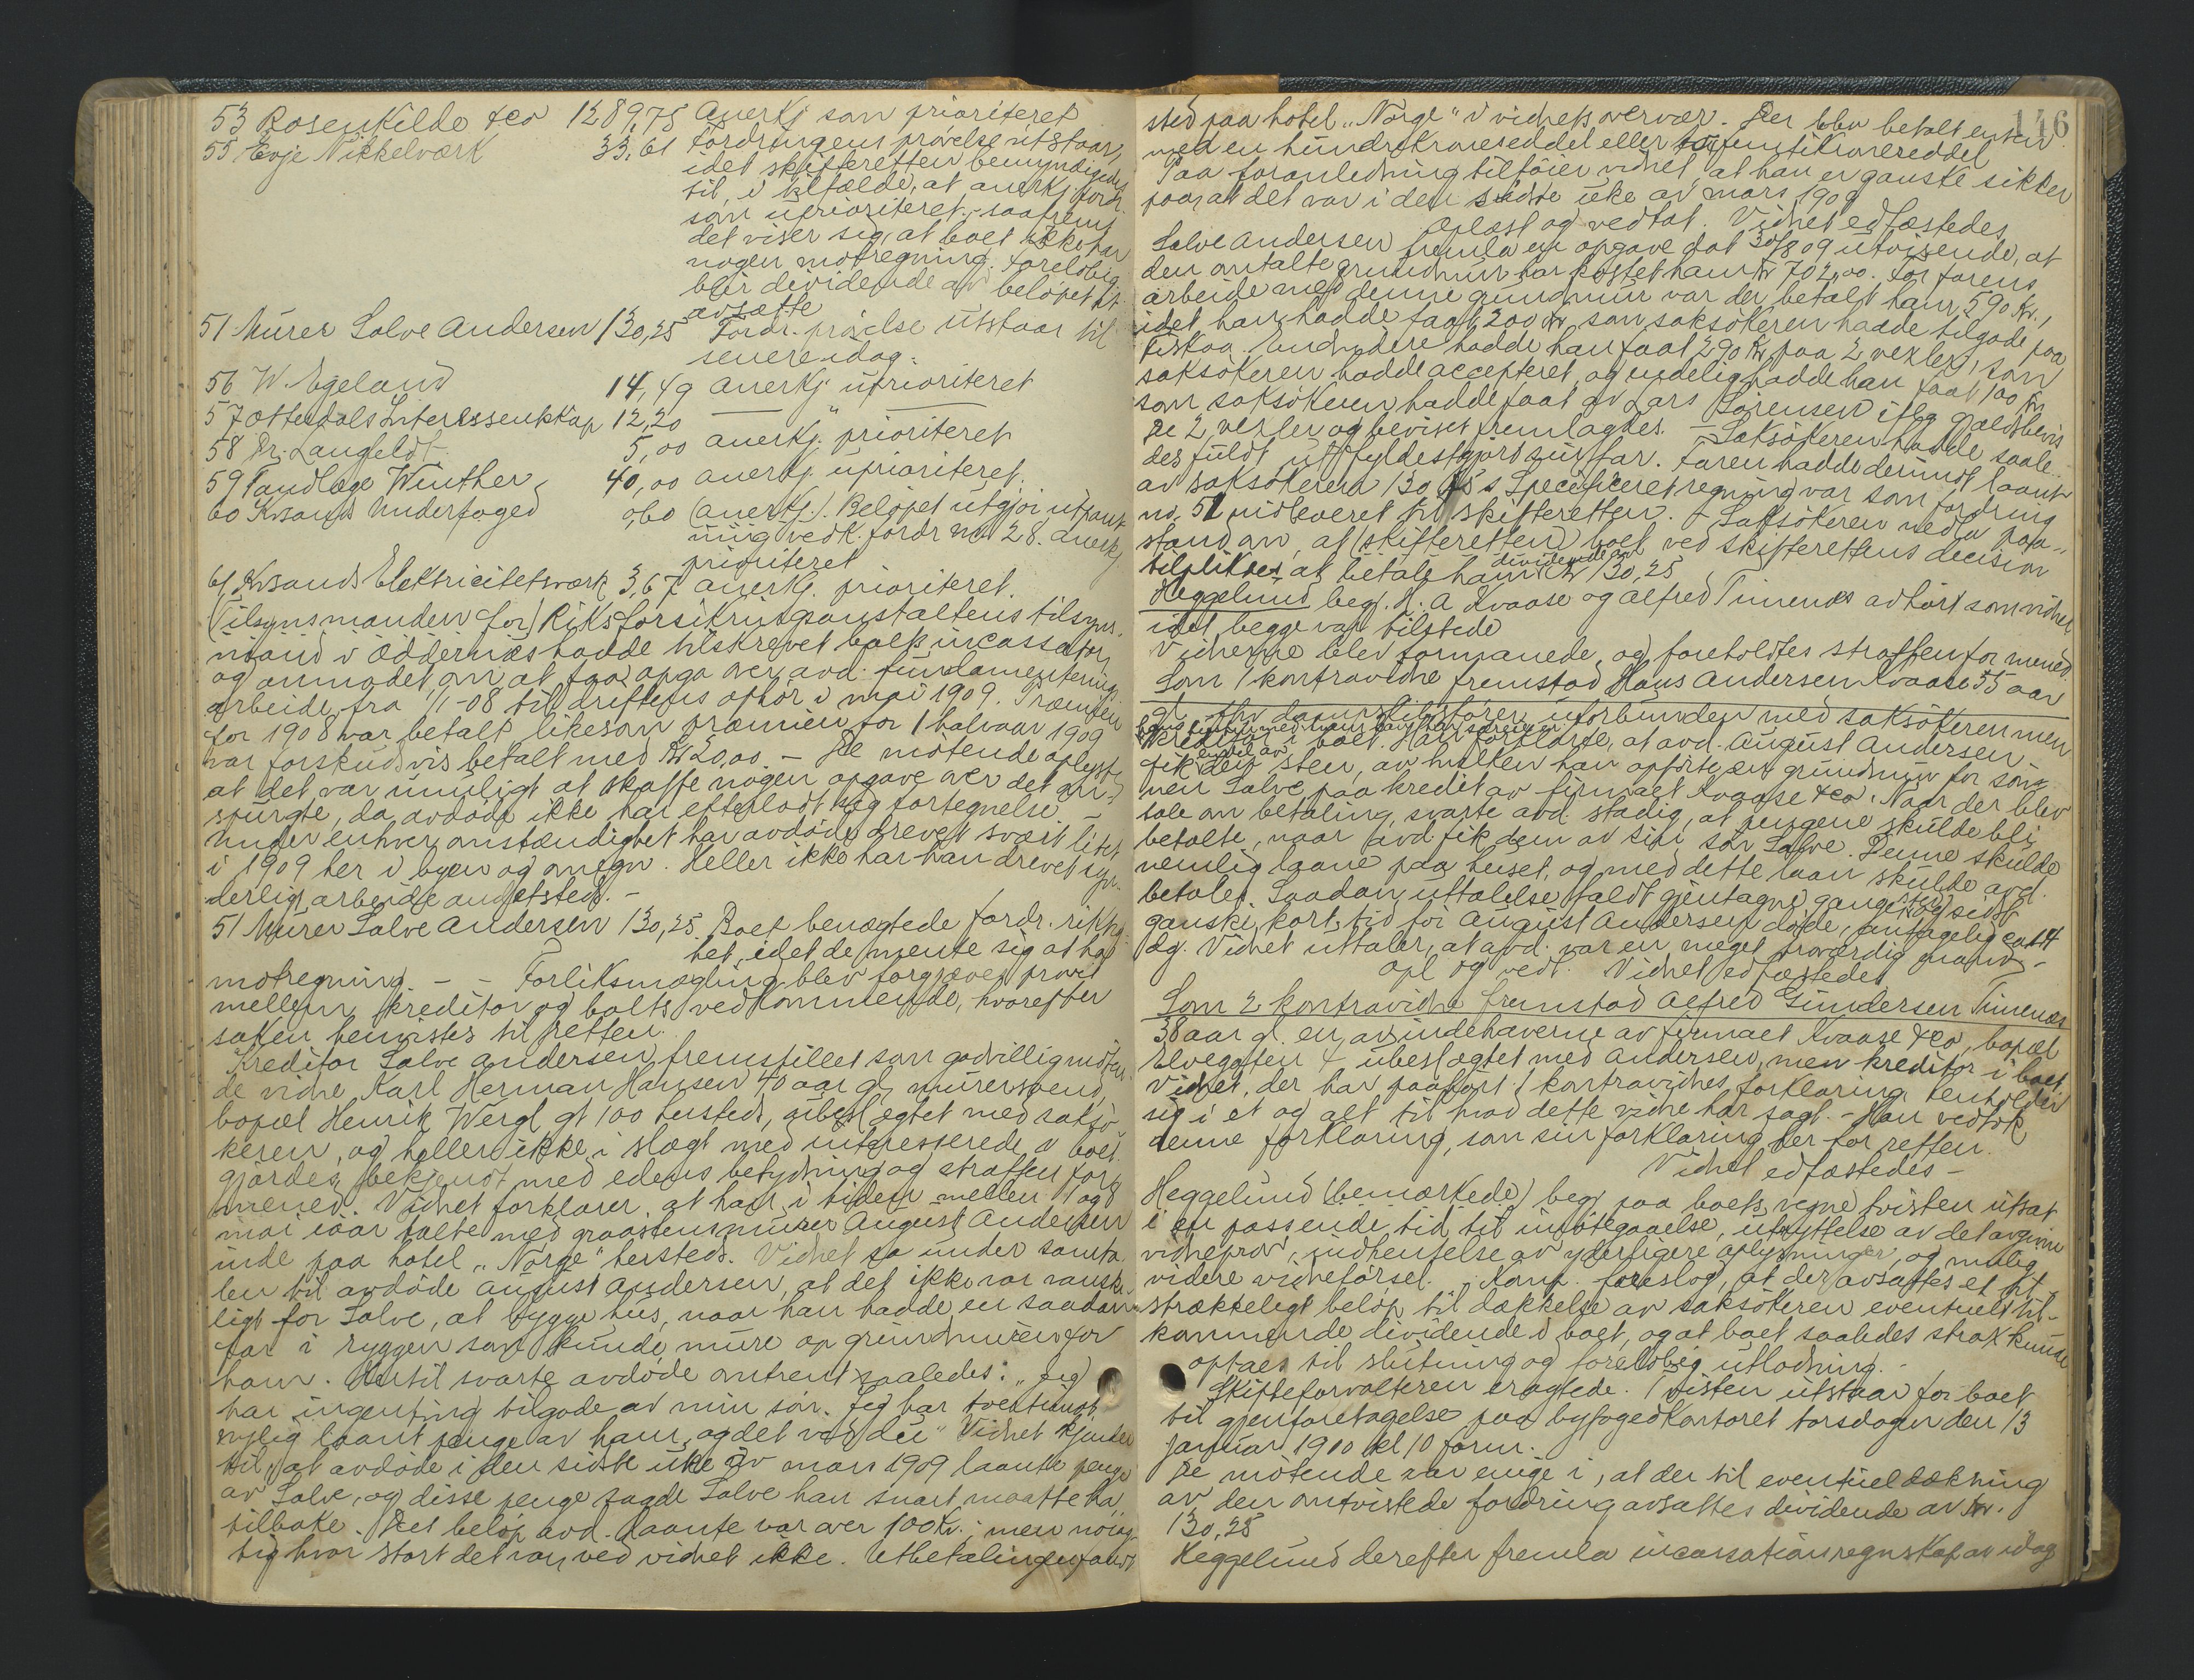 53 Rosenkilde & co 1289,75 Anerkj som prioriteret
55 Evje Nikkelværk 33,61 Fordringens prövelse utstaar,
idet skifteretten bemyndiges
til, i tilfælde, at anerkj. fordr.
som uprioriteret, saafremt
det viser sig, at boet ikke har
nogen motregning. Foreløbig
blir dividende av beløpet at
avsætte
51 Murer Salve Andersen 130,25 Fordr. prövelse utstaar til
senere idag.
56 W. Egeland 14,49 anerkj uprioriteret
57 Otterdals Interessentskap 12,20 — " —
58 Dr. Langfeldt 5,00 anerkj. prioriteret
59 Tandlæge Winther 40,00 anerkj. uprioriteret.
60 Krsands Underfoged 0,60 (anerkj.). Beløpet utgjør utpant
ning vedk. fordr no 28. Anerkj
prioriteret
61 Krsands Elektricitetsværk 3,67 anerkj. prioriteret.
(Tilsynsmanden for) Riksforsikringsanstaltens tilsyns-
mand i Oddernæs hadde tilskrevet boets incassator
og anmodet om at faa opga over avd. fundamenterings
arbeide fra 1/1-08 til driftens ophør i mai 1909. Præmien
for 1908 var betalt likesom præmien for 1 halvaar 1909
var forskudsvis betalt med Kr 20,00. – De møtende oplyste
at det var umuligt at skaffe nogen opgave over det om-
spurgte, da avdøde ikke har efterladt sig fortegnelse –
Under enhver omstændighet har avdøde drevet svært litet
i 1909 her i byen og omegn. Heller ikke har han drevet syn-
derlig arbeide andetsteds. –
51 Murer Salve Andersen 130,25. Boet benegtede fordr. riktig-
het, idet de mente sig at ha
motregning. – – Forliksmægling blev forgjæves prövet
mellem kreditor og boets vedkommende, hvorefter
saken henvistes til retten.
Kreditor Salve Andersen fremstillet som godvillig møten-
de vidne Karl Herman Hansen 40 aar gl, murersvend,
bopæl Henrik Wergl gt 100 hersteds, ubeslægtet med saksö-
keren, og heller ikke i slægt med interesserede i boet.
gjordes bekjendt med edens betydning og straffen for
mened. Vidnet forklarer at han i tiden mellem 1 og 8
mai iaar talte med graastensmurer August Andersen
inde paa hotel „Norge" hersteds. Vidnet sa under samta-
len til avdøde August Andersen, at det ikke var vanske
ligt for Salve, at bygge hus, naar han hadde en saadan
far i ryggen som kunde mure op grundmuren for
ham. Hertil svarte avdøde omtrent saaledes: „Jeg
har ingenting tilgode av min søn. Jeg har tvertimot
nylig laant penge av ham, og det ved du" Vidnet kjender
til, at avdøde i den sidste uke av mars 1909 laante penge
av Salve, og disse penge sagde Salve han snart maatte ha
tilbake. Det beløp avd. laante var over 100 Kr.; men nøiag-
tig hvor stort det var, ved vidnet ikke. Utbetalingen fandt
146
sted paa hotel „Norge" i vidnets overvær. Der blev betalt enten
med en hundrekroneseddel eller to femtikronesedel
Paa foranledning tilføier vidnet, at han er ganske sikker
paa, at det var i den sidste uke av mars 1909
Oplæst og vedtat. Vidnet edfæstedes
Salve Andersen fremla en opgave dat 30/8 09 utvisende, at
den omtalte grundmur har kostet ham Kr 702,00. For farens
arbeide med denne grundmur var der betalt ham 590 Kr.,
idet han hadde faat 200 Kr. som saksökeren hadde tilgode paa
Fiskaa. Endvidere hadde han faat 290 Kr. paa 2 vexler, som
saksökeren hadde accepteret, og endelig hadde han faat 100 Kr
som saksökeren hadde faat av Lars Sørensen ifølg gjældsbevis
De 2 vexler og beviset fremlagdes. – Saksökeren hadde saale-
des fuldt ut fyldestgjort sin far. Faren hadde derimot laant
av saksökeren 130,25 Specificeret regning var som fordring
no. 51 indleveret til skifteretten. – Saksökeren nedla paa-
stand om, at (skifteretten) boet ved skifterettens decision
tilpliktes at betale ham dividende av Kr 130,25
Heggelund beg. H. A Kvaase og Alfred Timenes avhørt som vidner
idet begge var tilstede
Vidnerne blev formanede, og foreholdtes straffen for mened.
Som 1 kontravidne fremstod Hans Andersen Kvaase 55 aar
gl. uforbunden med saksökeren men
kreditor i boet. Han forklarte, at avd. August Andersen
fik endel av den sten, av hvilken han opførte en grundmur for søn-
nen Salve paa kredit av firmaet Kvaase & co. Naar der blev
tale om betaling, svarte avd. stadig, at pengene skulde bli
betalte, naar avd fik dem av sin søn Salve. Denne skulde
nemlig laane paa huset, og med dette laan skulde avd.
betales. Saadan uttalelse faldt gjentagne gange, og sidst
ganske kort tid før August Andersen døde, antagelig ca 14
dg. Vidnet uttaler, at avd. var en meget troværdig mand –
Opl og vedt. Vidnet edfæstedes
Som 2 kontravidne fremstod Alfred Gundersen Timenes
38 aar gl. en av indehaverne av firmaet Kvaase & co, bopæl
Elvegaten 4 ubeslægtet med Andersen, men kreditor i boet
Vidnet, der har paahørt 1 kontravidnes forklaring henholder
sig i et og alt til hvad dette vidne har sagt. – Han vedtok
denne forklaring, som sin forklaring her for retten.
Vidnet edfæstedes –
Heggelund (bemærkede) beg paa boets vegne tvisten utsat
i en passende tid til imøtegaaelse, utnyttelse av det avgivne
vidneprov, indhentelse av yderligere oplysninger, og mulig
videre vidneførsel. Komp. foreslog, at der avsættes et til-
strækkeligt beløp til dækkelse av saksökeren eventuelt til-
kommende dividende i boet, og at boet saaledes strax kunde
optaes til slutning og foreløbig utlodning. –
Skifteforvalteren eragtede. Tvisten utstaar for boet
til gjenforetagelse paa byfogedkontoret torsdagen den 13
januar 1910 kl 10 form.
De møtende var enige i, at der til eventuel dækning
av den omtvistede fordring avsættes dividende av Kr.
130,25
Heggelund derefter fremla incassationsregnskap av idag